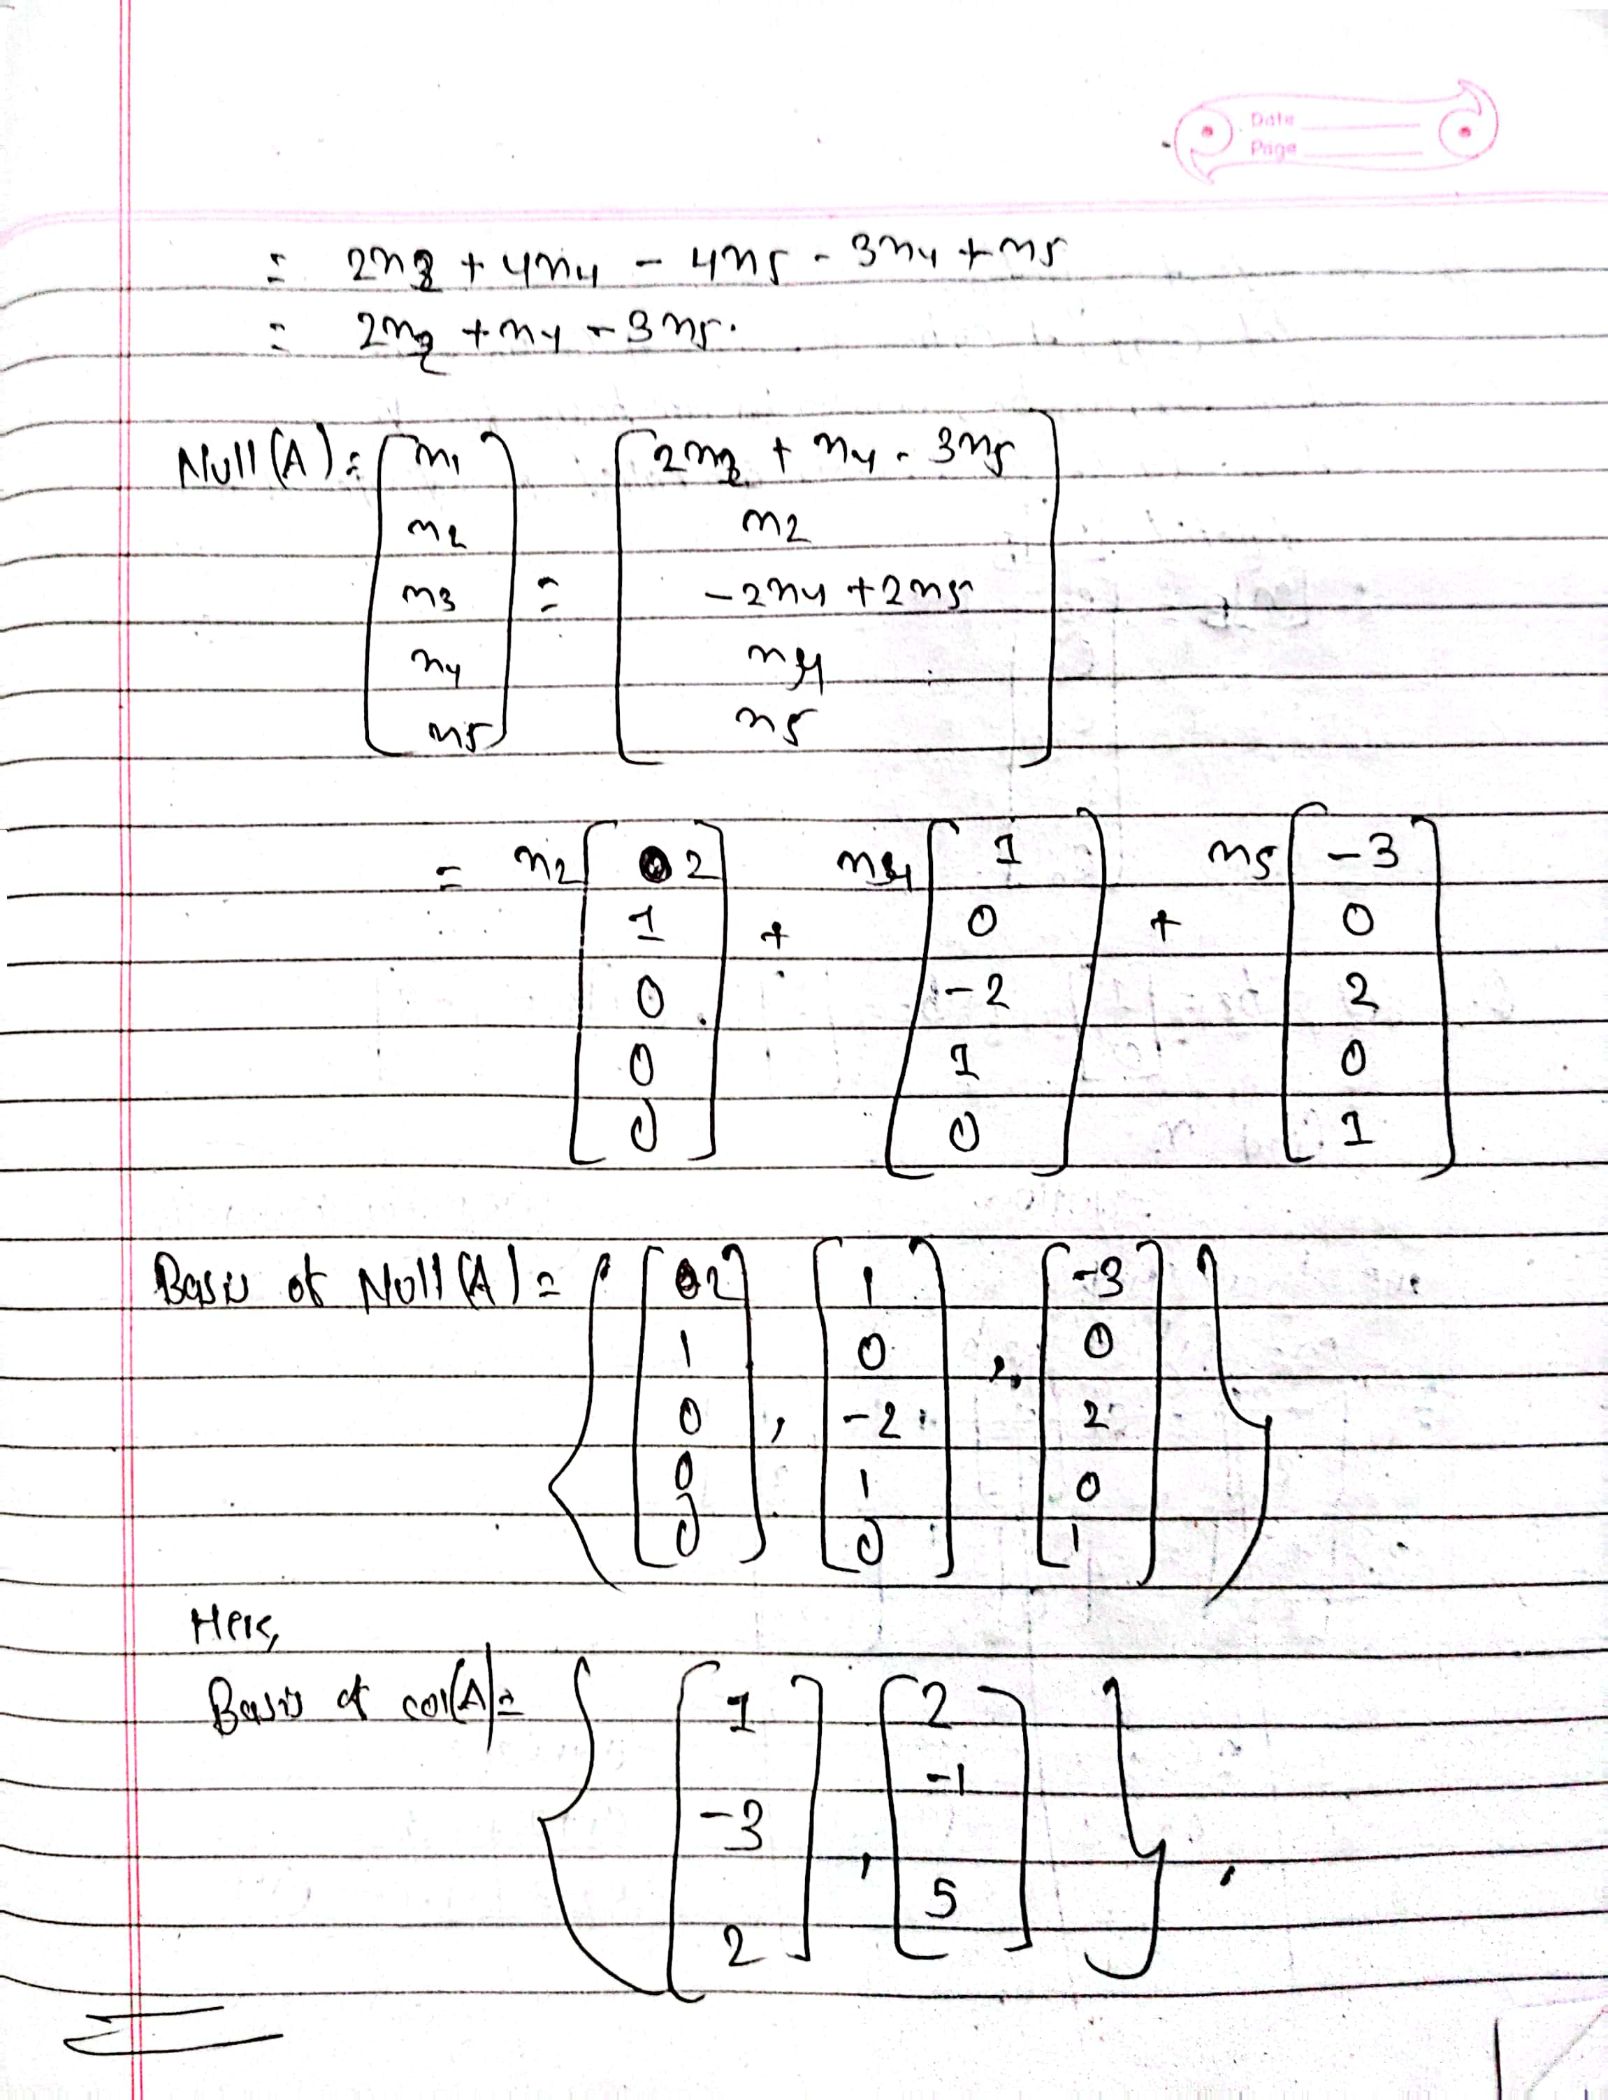 Date
Page
= 2n2 + 4n4 - 4n5 - 3n4 + n5
= 2n2 + n4 - 3n5.
Null(A) = [n1 n2 n3 n4 n5] = [2n2 + n4 - 3n5 n2 -2n4 + 2n5 n4 n5]
= n2 [2 1 0 0 0] + n4 [1 0 -2 1 0] + n5 [-3 0 2 0 1]
Basis of Null(A) = { [2 1 0 0 0] , [1 0 -2 1 0] , [-3 0 2 0 1] }
Here,
Basis of col(A) = { [1 -3 2] , [2 -1 5] } .